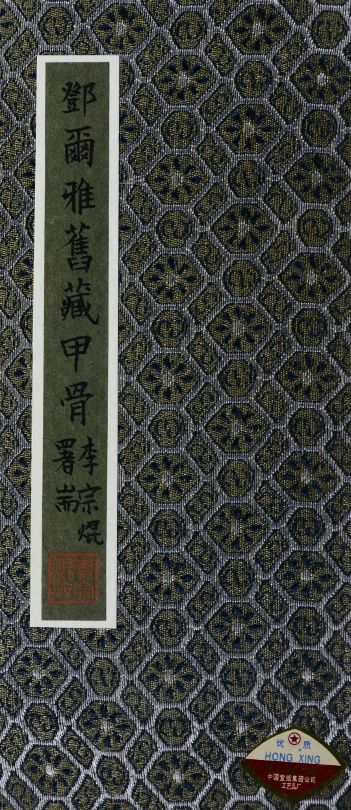 鄧爾雅舊藏甲骨
李宗焜
署耑
优 质
HONG XING
中国宣纸集团公司
工艺品厂